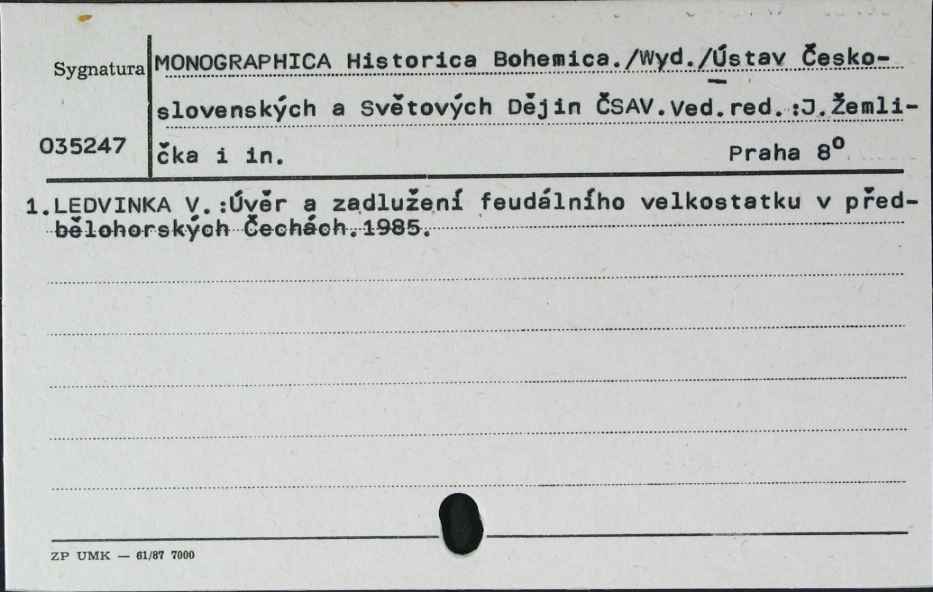 Sygnatura
035247
MONOGRAPHICA Historica Bohemica./Wyd./Ústav Česko-
slovenských a Světových Dějin ČSAV.Ved.red.:J.Žemli-
čka i in. Praha 8º
1.LEDVINKA V.:Úvěr a zadlužení feudálního velkostatku v před-
bělohorských Čechách.1985.
ZP UMK — 61/87 7000